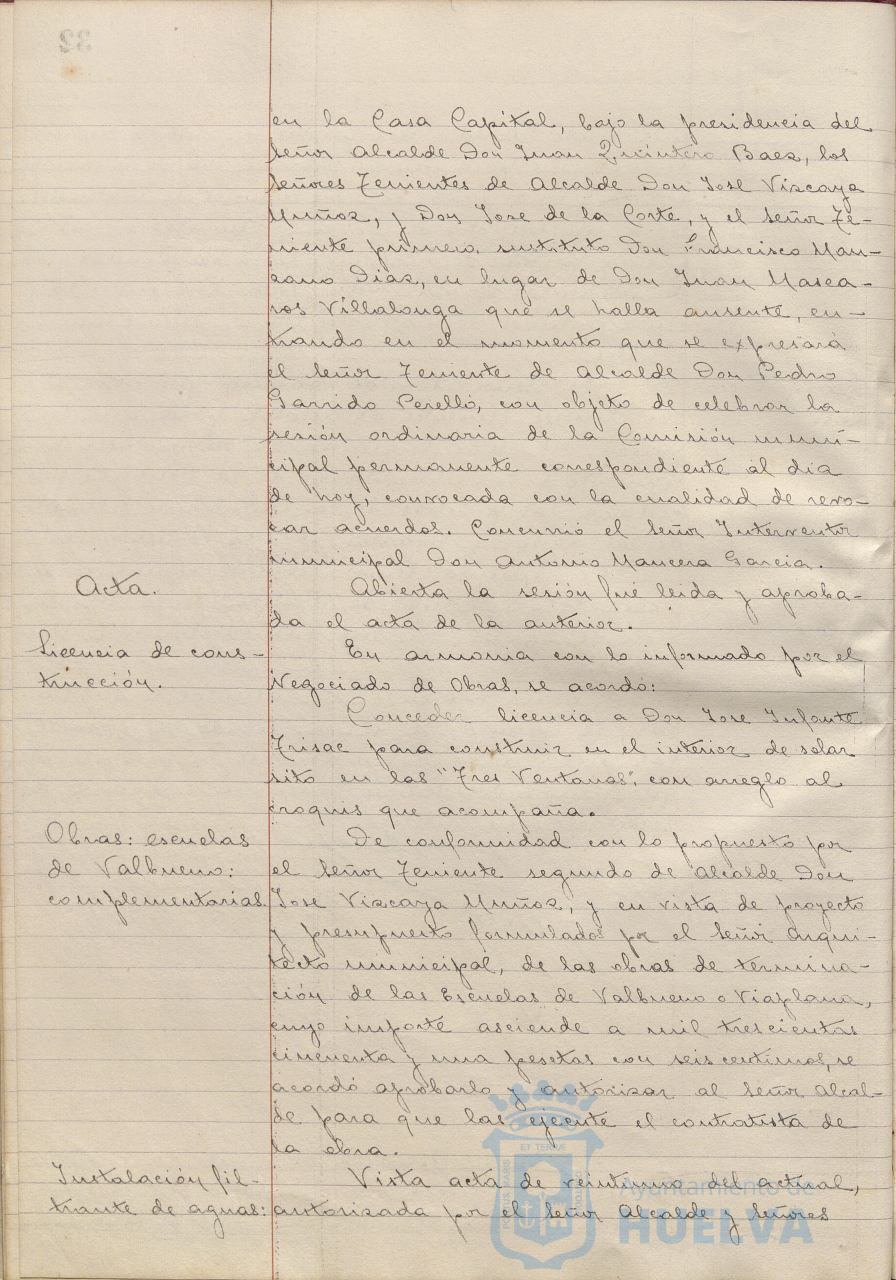 32
en la Casa Capital, bajo la presidencia del
Señor Alcalde Don Juan Quintero Baez, los
Señores Tenientes de Alcalde Don Jose Vizcaya
Muñoz, y Don Jose de la Corte, y el Señor Te-
niente primero sustituto Don Francisco Man-
cano Diaz, en lugar de Don Juan Masca-
ros Villalonga que se halla ausente, en-
trando en el momento que se expresará
el Señor Teniente de Alcalde Don Pedro
Garrido Perelló, con objeto de celebrar la
sesión ordinaria de la Comisión muni-
cipal permanente correspondiente al dia
de hoy, convocada con la cualidad de revo-
car acuerdos. Concurrió el Señor Interventor
municipal Don Antonio Mancera Garcia.
Acta.
Abierta la sesión fué leida y aproba-
da el acta de la anterior.
Licencia de cons-
trucción.
En armonia con lo informado por el
Negociado de Obras, se acordó:
Conceder licencia a Don Jose Infante
Trisac para construir en el interior de solar
sito en las "Tres Ventanas", con arreglo al
croquis que acompaña.
Obras: escuelas
de Valbueno:
complementarias.
De conformidad con lo propuesto por
el Señor Teniente segundo de Alcalde Don
Jose Vizcaya Muñoz, y en vista de proyecto
y presupuesto formulados por el Señor Arqui-
tecto municipal, de las obras de termina-
ción de las Escuelas de Valbueno o Viaplana,
cuyo importe asciende a mil trescientas
cincuenta y una pesetas con seis centimos, se
acordó aprobarlo y autorizar al Señor Alcal-
de para que las ejecute el contratista de
la obra.
Instalación fil-
trante de aguas:
Vista acta de veintiuno del actual,
autorizada por el Señor Alcalde y Señores
Ayuntamiento de
HUELVA